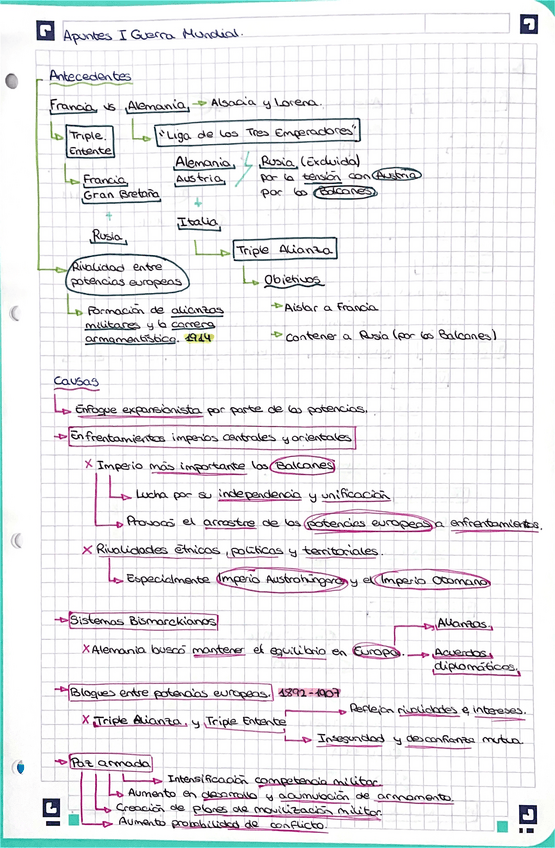 Apuntes I Guerra Mundial.
Antecedentes
Francia vs Alemania → Alsacia y Lorena.
Triple Entente
"Liga de los Tres Emperadores"
Francia
Gran Bretaña
+
Rusia
Alemania
Austria
+
Italia
Rusia (Excluida)
por la tensión con Austria
por los Balcanes
Triple Alianza
Objetivos
→ Aislar a Francia
→ Contener a Rusia (por los Balcanes)
Rivalidad entre
potencias europeas
Formación de alianzas
militares y la carrera
armamentística. 1914
Causas
Enfoque expansionista por parte de las potencias.
→ Enfrentamientos imperios centrales y orientales
X Imperio más importante los Balcanes
Lucha por su independencia y unificación
Provocó el arrastre de las potencias europeas a enfrentamientos.
X Rivalidades étnicas, políticas y territoriales.
Especialmente Imperio Austrohúngaro y el Imperio Otomano
→ Sistemas Bismarckianos
X Alemania buscó mantener el equilibrio en Europa
Alianzas
Acuerdos
diplomáticos
→ Bloques entre potencias europeas. 1892-1907
X Triple Alianza y Triple Entente
Reflejan rivalidades e intereses.
Inseguridad y desconfianza mutua
→ Paz armada
Intensificación competencia militar
Aumento en desarrollo y acumulación de armamento.
Creación de planes de movilización militar.
Aumento probabilidad de conflicto.